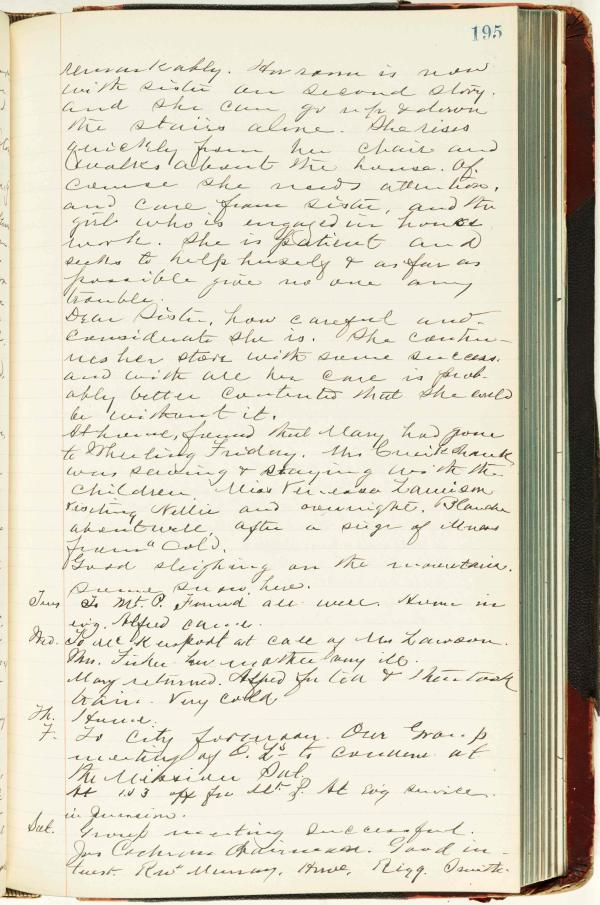 195
remarkably. Her room is now
with sister on second story.
and she can go up & down
the stairs alone. She rises
quickly from her chair and
walks about the house. Of
course she needs attention,
and care from sister, and the
girl who is engaged in house
work. She is patient and
seeks to help herself & as far as
possible give no one any
trouble.
Dear Sister, how careful and
considerate she is. She contin-
ues her store with some success.
and with all her care is prob-
ably better contented that she could
be without it.
At home, found that Mary had gone
to Wheeling Friday. Mrs Cruikshank
was sewing & staying with the
children. Miss Jamison
visiting Nellie and overnight. Blanche
about well, after a siege of
from a cold.
Good sleighing on the mountains.
some snow here.
Tues To Mt. P. Found all well. Home in
evg. Alfred came.
Wed. To McKeesport at call of Mrs Lawson.
Mrs. Fisher her mother very ill.
Mary returned. Alfred for tea & then took
train. Very cold
Th. Home.
F. To City forenoon. Our Group
meeting of C. Ls to convene at
the Mission Sat.
At 1.03 off for Mt P. At Evg service.
in
Sat. Group meeting successful.
Jos Cochran Chairman. Good in-
terest. Revs Murray, Howe, Rigg. Smith.